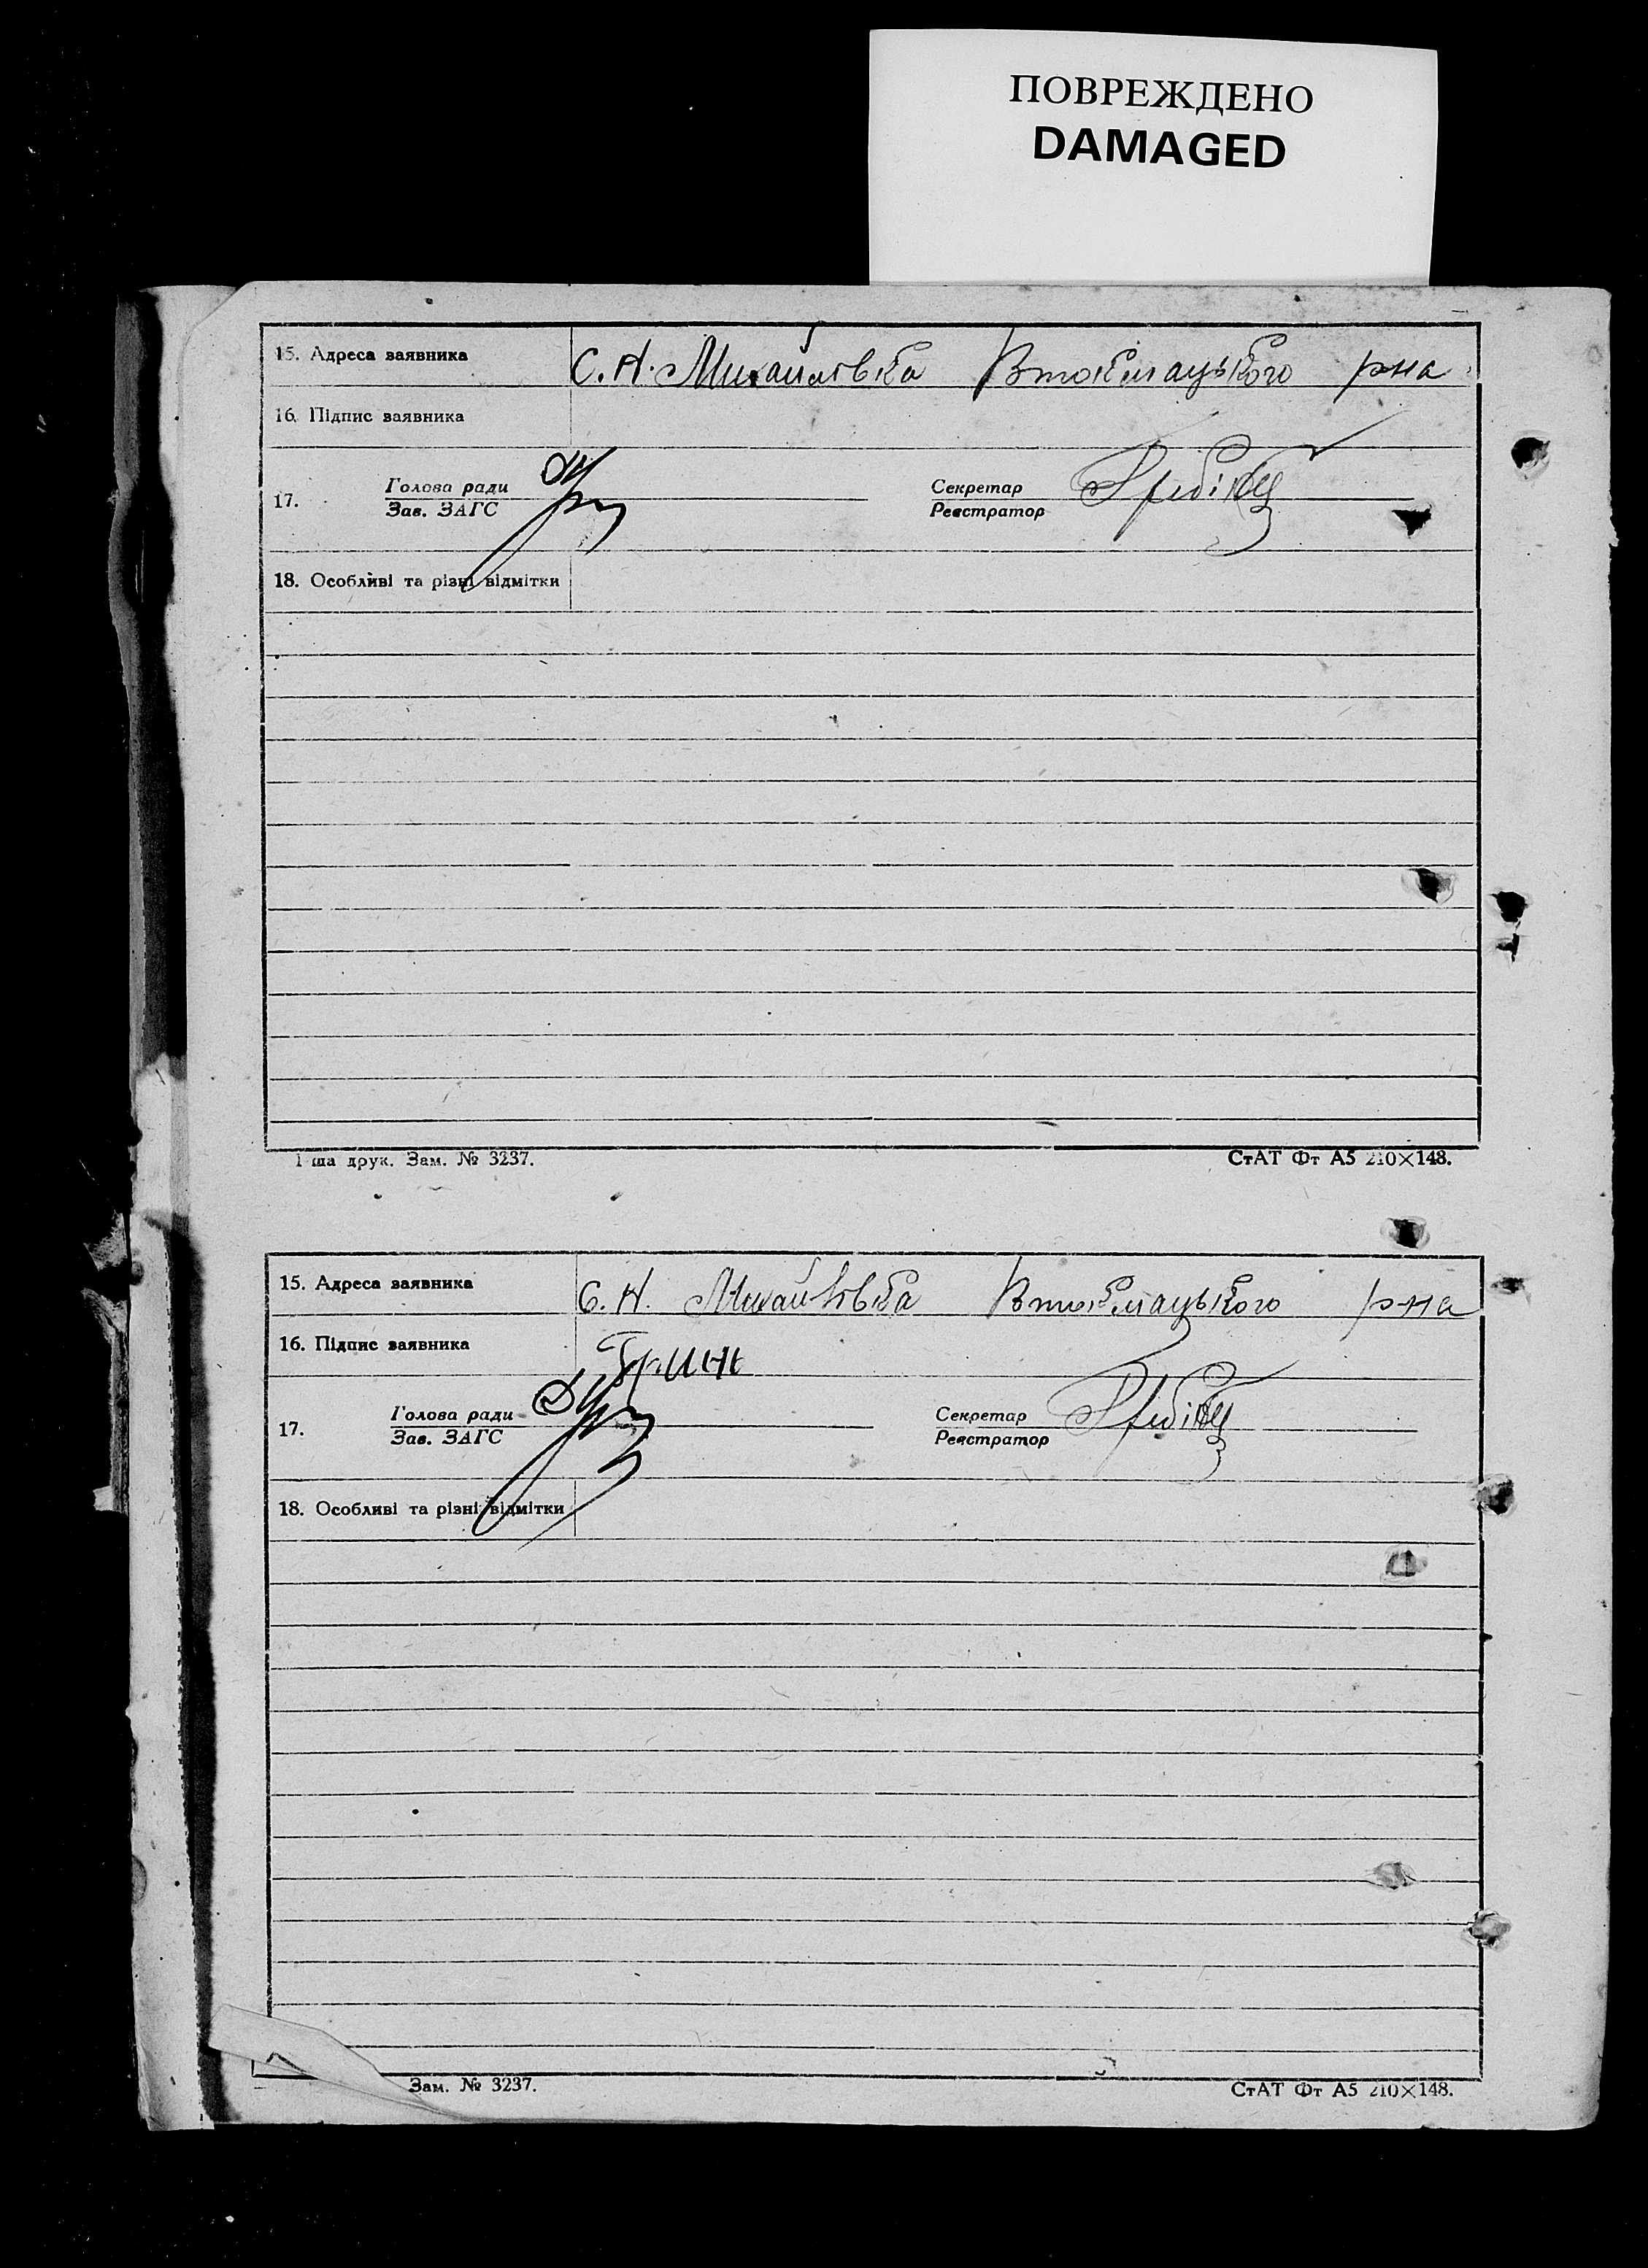 ПОВРЕЖДЕНО
DAMAGED
15. Адреса заявника С. Н. Михайловка Втокмацького рна
16. Підпис заявника
17. Голова ради Секретар
Зав. ЗАГС Реєстратор
18. Особливі та різні відмітки
1 ша друк. Зам. № 3237. СтАТ Фт А5 210×148.
15. Адреса заявника С. Н. Михайловка Втокмацького р-на
16. Підпис заявника
17. Голова ради Секретар
Зав. ЗАГС Реєстратор
18. Особливі та різні відмітки
Зам. № 3237. СтАТ Фт А5 210×148.